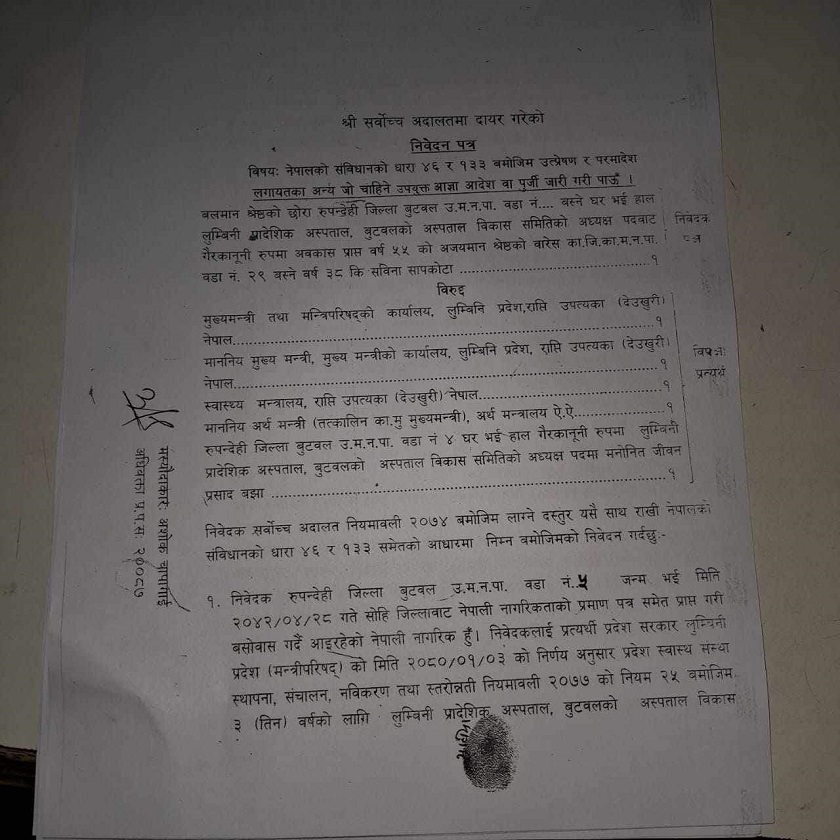 श्री सर्वोच्च अदालतमा दायर गरेको
निवेदन पत्र
विषय: नेपालको संविधानको धारा ४६ र १३३ बमोजिम उत्प्रेषण र परमादेश
लगायतका अन्य जो चाहिने उपयुक्त आज्ञा आदेश वा पूर्जी जारी गरी पाऊँ ।
बलमान श्रेष्ठको छोरा रुपन्देही जिल्ला बुटवल उ.म.न.पा. वडा नं.... बस्ने घर भई हाल
लुम्बिनी प्रादेशिक अस्पताल, बुटवलको अस्पताल विकास समितिको अध्यक्ष पदबाट
निवेदक
गैरकानूनी रुपमा अवकास प्राप्त वर्ष ५५ को अजयमान श्रेष्ठको वारेस का.जि.का.म.न.पा.
वडा नं. २९ बस्ने वर्ष ३८ कि सबिना सापकोटा ................................................१
विरुद्ध
मुख्यमन्त्री तथा मन्त्रिपरिषद्को कार्यालय, लुम्बिनि प्रदेश,राप्ति उपत्यका (देउखुरी)
नेपाल.....................................................................................१
माननिय मुख्य मन्त्री, मुख्य मन्त्रीको कार्यालय, लुम्बिनि प्रदेश, राप्ति उपत्यका (देउखुरी)
विपक्ष
नेपाल.....................................................................................१
प्रत्यर्थी
स्वास्थ्य मन्त्रालय, राप्ति उपत्यका (देउखुरी) नेपाल.....................................१
माननिय अर्थ मन्त्री (तत्कालिन का.मु मुख्यमन्त्री), अर्थ मन्त्रालय ऐ.ऐ....................१
रुपन्देही जिल्ला बुटवल उ.म.न.पा. वडा नं ४ घर भई हाल गैरकानूनी रुपमा लुम्बिनी
प्रादेशिक अस्पताल, बुटवलको अस्पताल विकास समितिको अध्यक्ष पदमा मनोनित जीवन
प्रसाद बझा ................................................................................१
मस्यौदाकार: अशोक चापागाई
अधिवक्ता प्र.प.सं २००८७
निवेदक सर्वोच्च अदालत नियमावली २०७४ बमोजिम लाग्ने दस्तुर यसै साथ राखी नेपालको
संविधानको धारा ४६ र १३३ समेतको आधारमा निम्न बमोजिमको निवेदन गर्दछु:-
१. निवेदक रुपन्देही जिल्ला बुटवल उ.म.न.पा. वडा नं.५ जन्म भई मिति
२०४२/०४/२८ गते सोहि जिल्लाबाट नेपाली नागरिकताको प्रमाण पत्र समेत प्राप्त गरी
बसोवास गर्दै आइरहेको नेपाली नागरिक हुँ। निवेदकलाई प्रत्यर्थी प्रदेश सरकार लुम्बिनी
प्रदेश (मन्त्रीपरिषद्) को मिति २०८०/०१/०३ को निर्णय अनुसार प्रदेश स्वास्थ संस्था
स्थापना, संचालन, नविकरण तथा स्तरोन्नती नियमावली २०७७ को नियम २५ बमोजिम
३ (तिन) वर्षको लागि लुम्बिनी प्रादेशिक अस्पताल, बुटवलको अस्पताल विकास